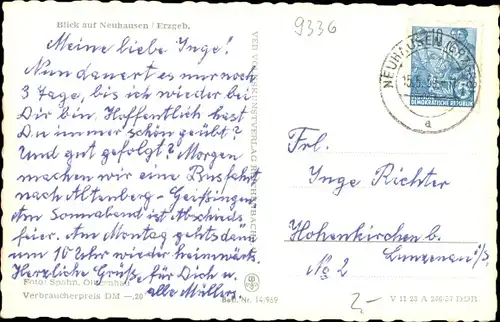 Blick auf Neuhausen / Erzgeb.
9336
Meine liebe Inge!
Nun dauert es nur noch
3 Tage, bis ich wieder bei
Dir bin. Hoffentlich hast
Du immer schön geübt?
Und gut gefolgt? Morgen
machen wir eine Busfahrt
nach Altenberg - Geißingen.
Am Sonnabend ist Abschieds
feier. Am Montag gehts dann
um 10 Uhr wieder heimwärts.
Herzliche Grüße, für Dich u.
alle Müllers.
Foto: Spahn, Olbernhau
Verbraucherpreis DM —,20
Best.-Nr. 14/969
NEUHAUSEN (ERZGEB)
15.5.
a
DEUTSCHE
DEMOKRATISCHE REPUBLIK
5
Frl.
Inge Richter
Hohenkirchen b.
Lunzenau i/S.
No 2
2,-
V 11 28 A 240/57 DDR